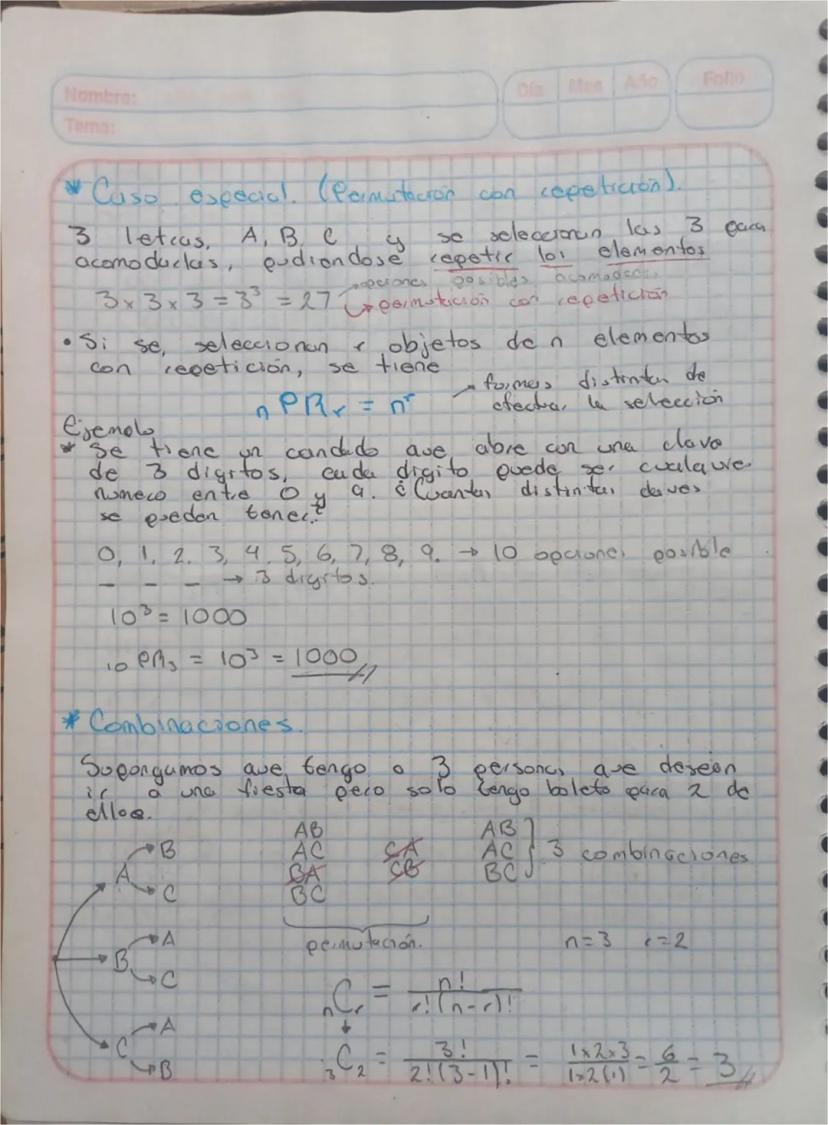 Nombre:
Tema:
Día Mes Año
Folio
* Caso especial. (Permutación con repetición).
3 letras, A, B, C y se seleccionan las 3 para
acomodarlas, pudiendose repetir los elementos
3 x 3 x 3 = 3³ = 27 → opciones posibles acomodadas
↳ permutación con repetición
• Si se, seleccionan r objetos de n elementos
con repetición, se tiene
nPRr = nʳ → formas distintas de
efectuar la selección
Ejemplo
* Se tiene un candado que abre con una clave
de 3 digitos, cada digito puede ser cualquier
numero entre 0 y 9. ¿Cuantas distintas claves
se pueden tener?
0, 1, 2, 3, 4, 5, 6, 7, 8, 9. → 10 opciones posible
_ _ _ → 3 digitos.
10³ = 1000
10PR3 = 10³ = 1000
* Combinaciones.
Supongamos que tengo a 3 personas que deseen
ir a una fiesta pero solo tengo boleto para 2 de
ellos.
A → B
→ C
B → A
→ C
C → A
→ B
AB
AC CA
BA CB
BC
permutación.
AB
AC } 3 combinaciones
BC
n=3 r=2
nCr = n! / r!(n-r)!
3C2 = 3! / 2!(3-1)! = 1x2x3 / 1x2(1) = 6/2 = 3